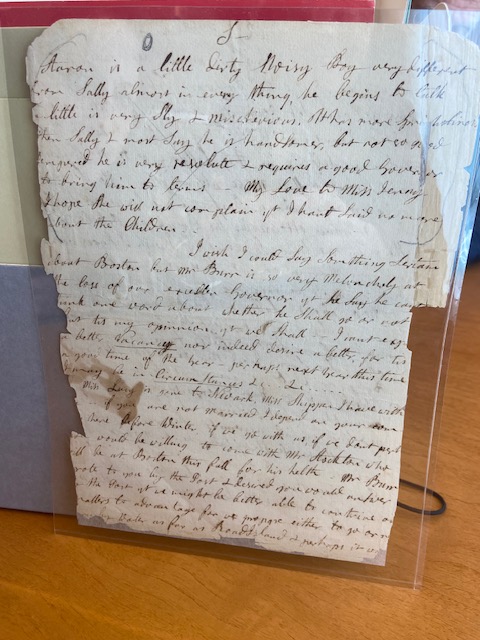 5
Aaron is a little dirty Noisy Boy very different
from Sally almost in every thing, he begins to talk
little is very Sly & mischievous. He has more Sprightliness
then Sally & most Say he is handsomer, but not so good
tempered he is very resolute & requires a good Governor
to bring him to terms — My Love to Miss Jenny
I hope She will not complain yt I hant Said no more
about the Children.
I wish I could Say Something Certain
about Boston but Mr Burr is so very Melancholy at
the loss of our Governor yt he Says he cannot
one word about whether he Shall go or not
tis my opinnion yt we Shall I must
better Vacancy nor indeed desire a better, for tis
your time of the Year — perhaps next Year this time
may be in Circumstances
Miss is gone to Newark, Miss Shippen I have with
if you are not married I depend on your
here before Winter if we go with us if we dont perhaps
would be willing to come with Mr Stockton who
will be at Boston this fall for his helth. Mr Burr
wrote to you by the Post & desired you would answer
the Post yt he might be better able to
matters to advantage for we prepare either to go or
by Water as far as Road Island & perhaps